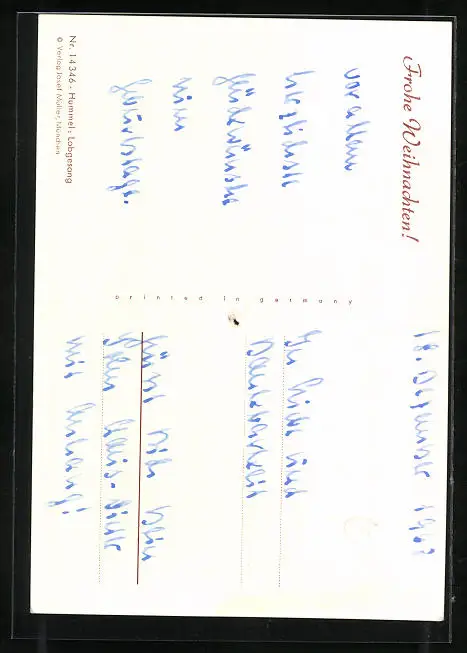 Frohe Weihnachten!
vor allem
herzlichste
Glückwünsche
zum
Geburtstage.
Nr. 14346 · Hummel: Lobgesang
© Verlag Josef Müller, München
printed in germany
18. Dezember 1963
In Liebe und
Dankbarkeit
Dein
mit